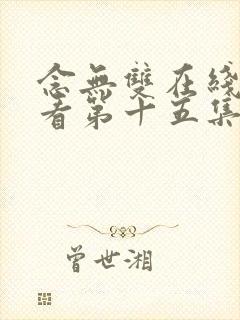 念無雙在綫
看第十五集
曾世湘